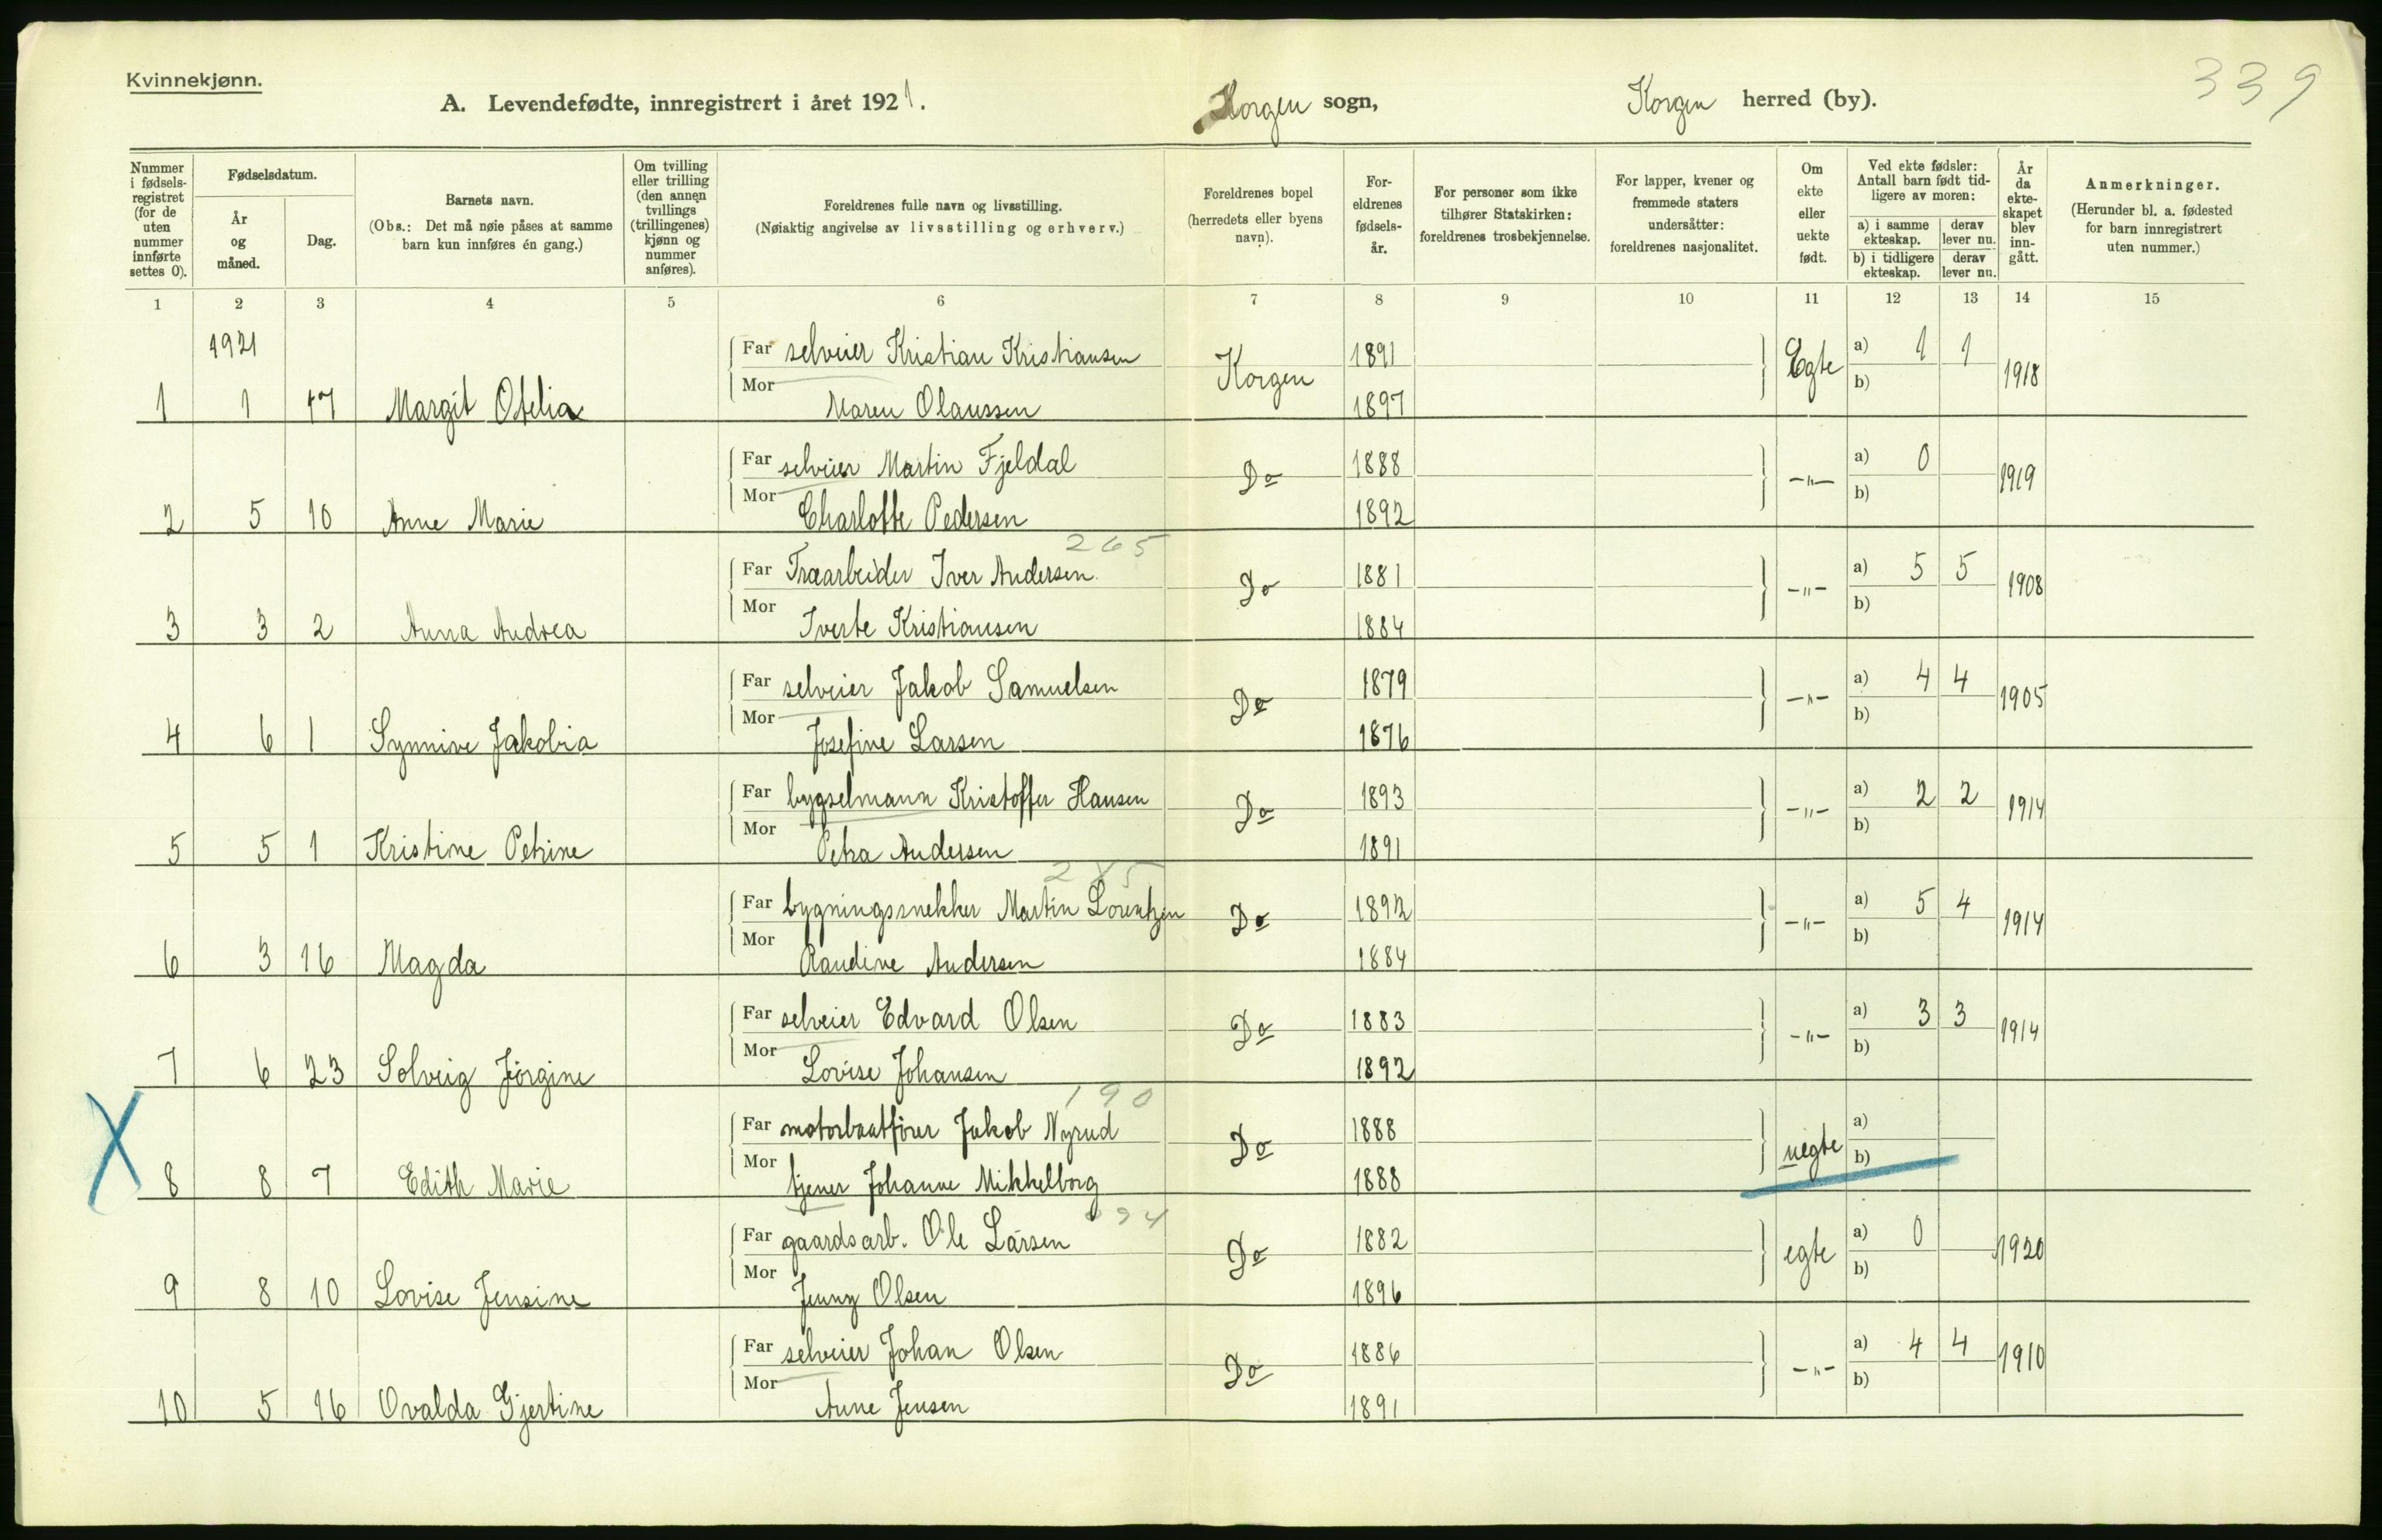 Kvinnekjønn.
339
A. Levendefødte, innregistrert i året 1921.
Korgen sogn,
Korgen herred (by).
Nummer i fødsels-registret (for de uten nummer innførte settes 0).
Fødselsdatum.
År og måned.
Dag.
Barnets navn.
(Obs.: Det må nøie påses at samme barn kun innføres én gang.)
Om tvilling eller trilling (den annen tvillings (trillingenes) kjønn og nummer anføres).
Foreldrenes fulle navn og livsstilling.
(Nøiaktig angivelse av livsstilling og erhverv.)
Foreldrenes bopel
(herredets eller byens navn).
For-eldrenes fødsels-år.
For personer som ikke tilhører Statskirken: foreldrenes trosbekjennelse.
For lapper, kvener og fremmede staters undersåtter: foreldrenes nasjonalitet.
Om ekte eller uekte født.
Ved ekte fødsler: Antall barn født tid-ligere av moren:
a) i samme ekteskap.
derav lever nu.
b) i tidligere ekteskap.
derav lever nu.
År da ekte-skapet blev inn-gått.
Anmerkninger.
(Herunder bl. a. fødested for barn innregistrert uten nummer.)
1 2 3 4 5 6 7 8 9 10 11 12 13 14 15
1921
Far selveier Kristian Kristiansen Korgen 1891 Egte a) 1 1 1918
1 1 17 Margit Otelia Mor Maren Olaussen 1897 b)
Far selveier Martin Fjeldal Do 1888 -"- a) 0 1919
2 5 10 Anne Marie Mor Charlotte Pedersen 1892 b)
265
Far Træarbeider Iver Andersen Do 1881 -"- a) 5 5 1908
3 3 2 Anna Andrea Mor Iverte Kristiansen 1884 b)
Far selveier Jakob Samuelsen Do 1879 -"- a) 4 4 1905
4 6 1 Synnive Jakobia Mor Josefine Larsen 1876 b)
Far bygselmann Kristoffer Hansen Do 1893 -"- a) 2 2 1914
5 5 1 Kristine Petrine Mor Petra Andersen 1891 b)
Far bygningssnekker Martin Lorentzen Do 1892 -"- a) 5 4 1914
6 3 16 Magda Mor Raudine Andersen 1884 b)
Far selveier Edvard Olsen Do 1883 -"- a) 3 3 1914
7 6 23 Solveig Jörgine Mor Lovise Johansen 1892 b)
190
Far motorbaatfører Jakob Nyrud Do 1888 uegte a)
X 8 8 7 Edith Marie Mor tjener Johanne Mikkelborg 1888 b)
Far gaardsarb. Ole Larsen Do 1882 egte a) 0 1920
9 8 10 Lovise Jensine Mor Jenny Olsen 1896 b)
Far selveier Johan Olsen Do 1886 -"- a) 4 4 1910
10 5 16 Ovalda Gjertine Mor Anne Jensen 1891 b)